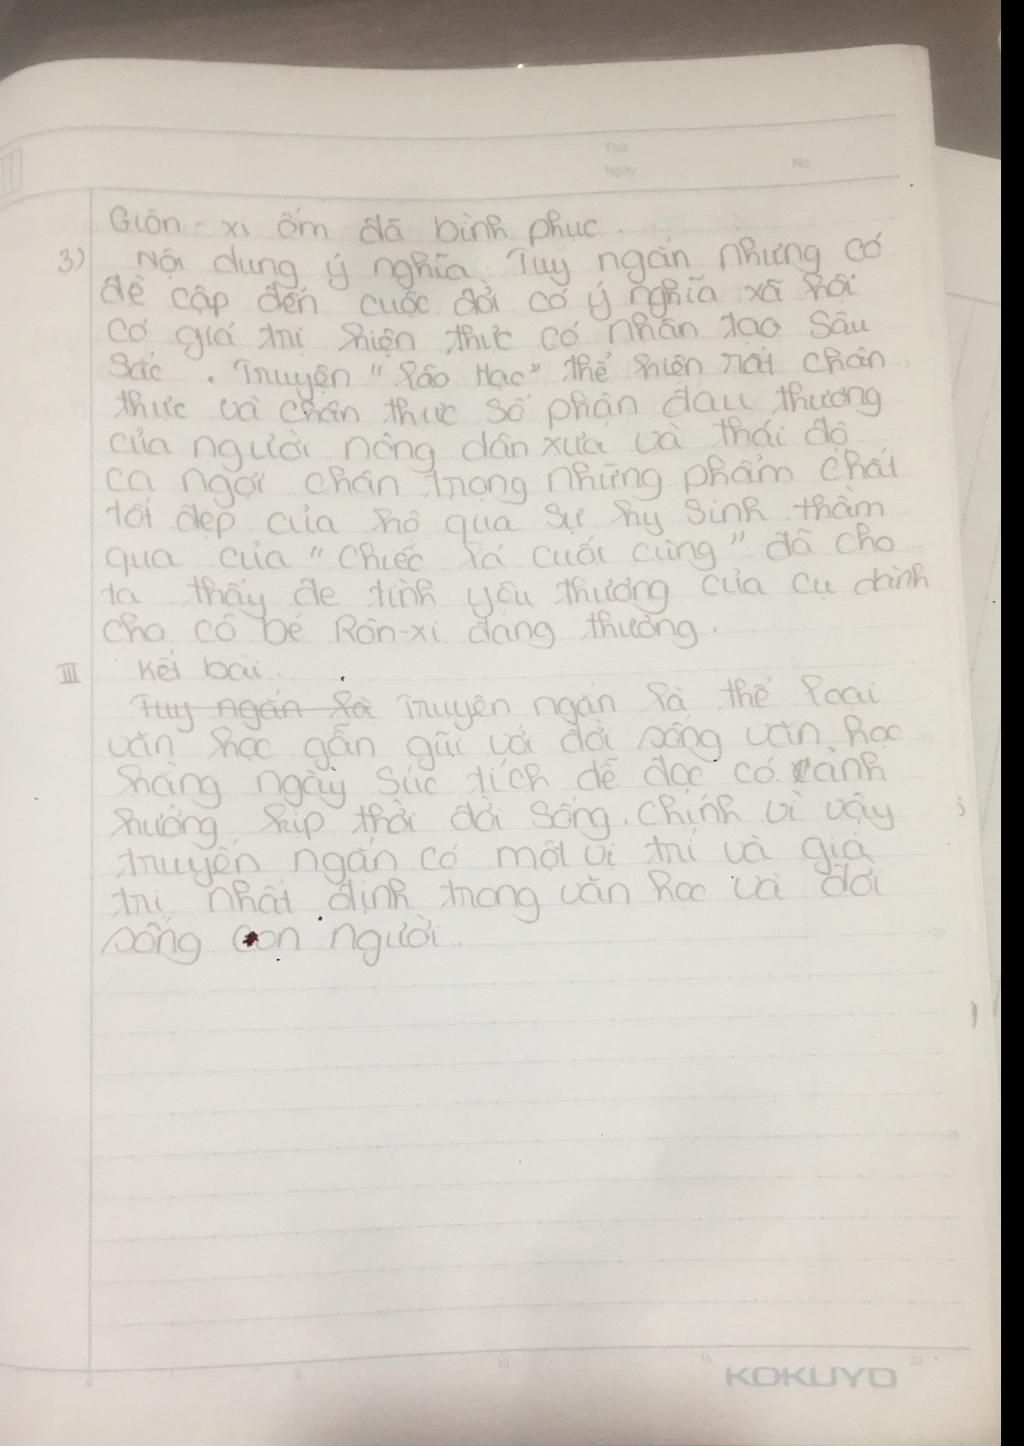 Thứ
Ngày
No
Giôn-xi ốm đã bình phục
3) Nội dung ý nghĩa. Tuy ngắn nhưng có
đề cập đến cuộc đời có ý nghĩa xã hội
có giá trị hiện thực có nhân tạo sâu
sắc. Truyện "Lão Hạc" thể hiện rất chân
thực và chân thực số phận đau thương
của người nông dân xưa và thái độ
ca ngợi chân trọng những phẩm chất
tốt đẹp của hô qua sự hy sinh thầm
qua của "chiếc lá cuối cùng" đã cho
ta thấy đc tình yêu thương của cụ dành
cho cô bé Rôn-xi đáng thường.
III Kết bài
Tuy ngắn là Truyện ngắn là thể loại
văn học gần gũi với đời sống văn học
hàng ngày súc tích dễ đọc có ảnh
hưởng kịp thời đời sống. Chính vì vậy
truyến ngắn có một vị trí và giá
trị nhất định trong văn học và đời
sống con người.
KOKUYO